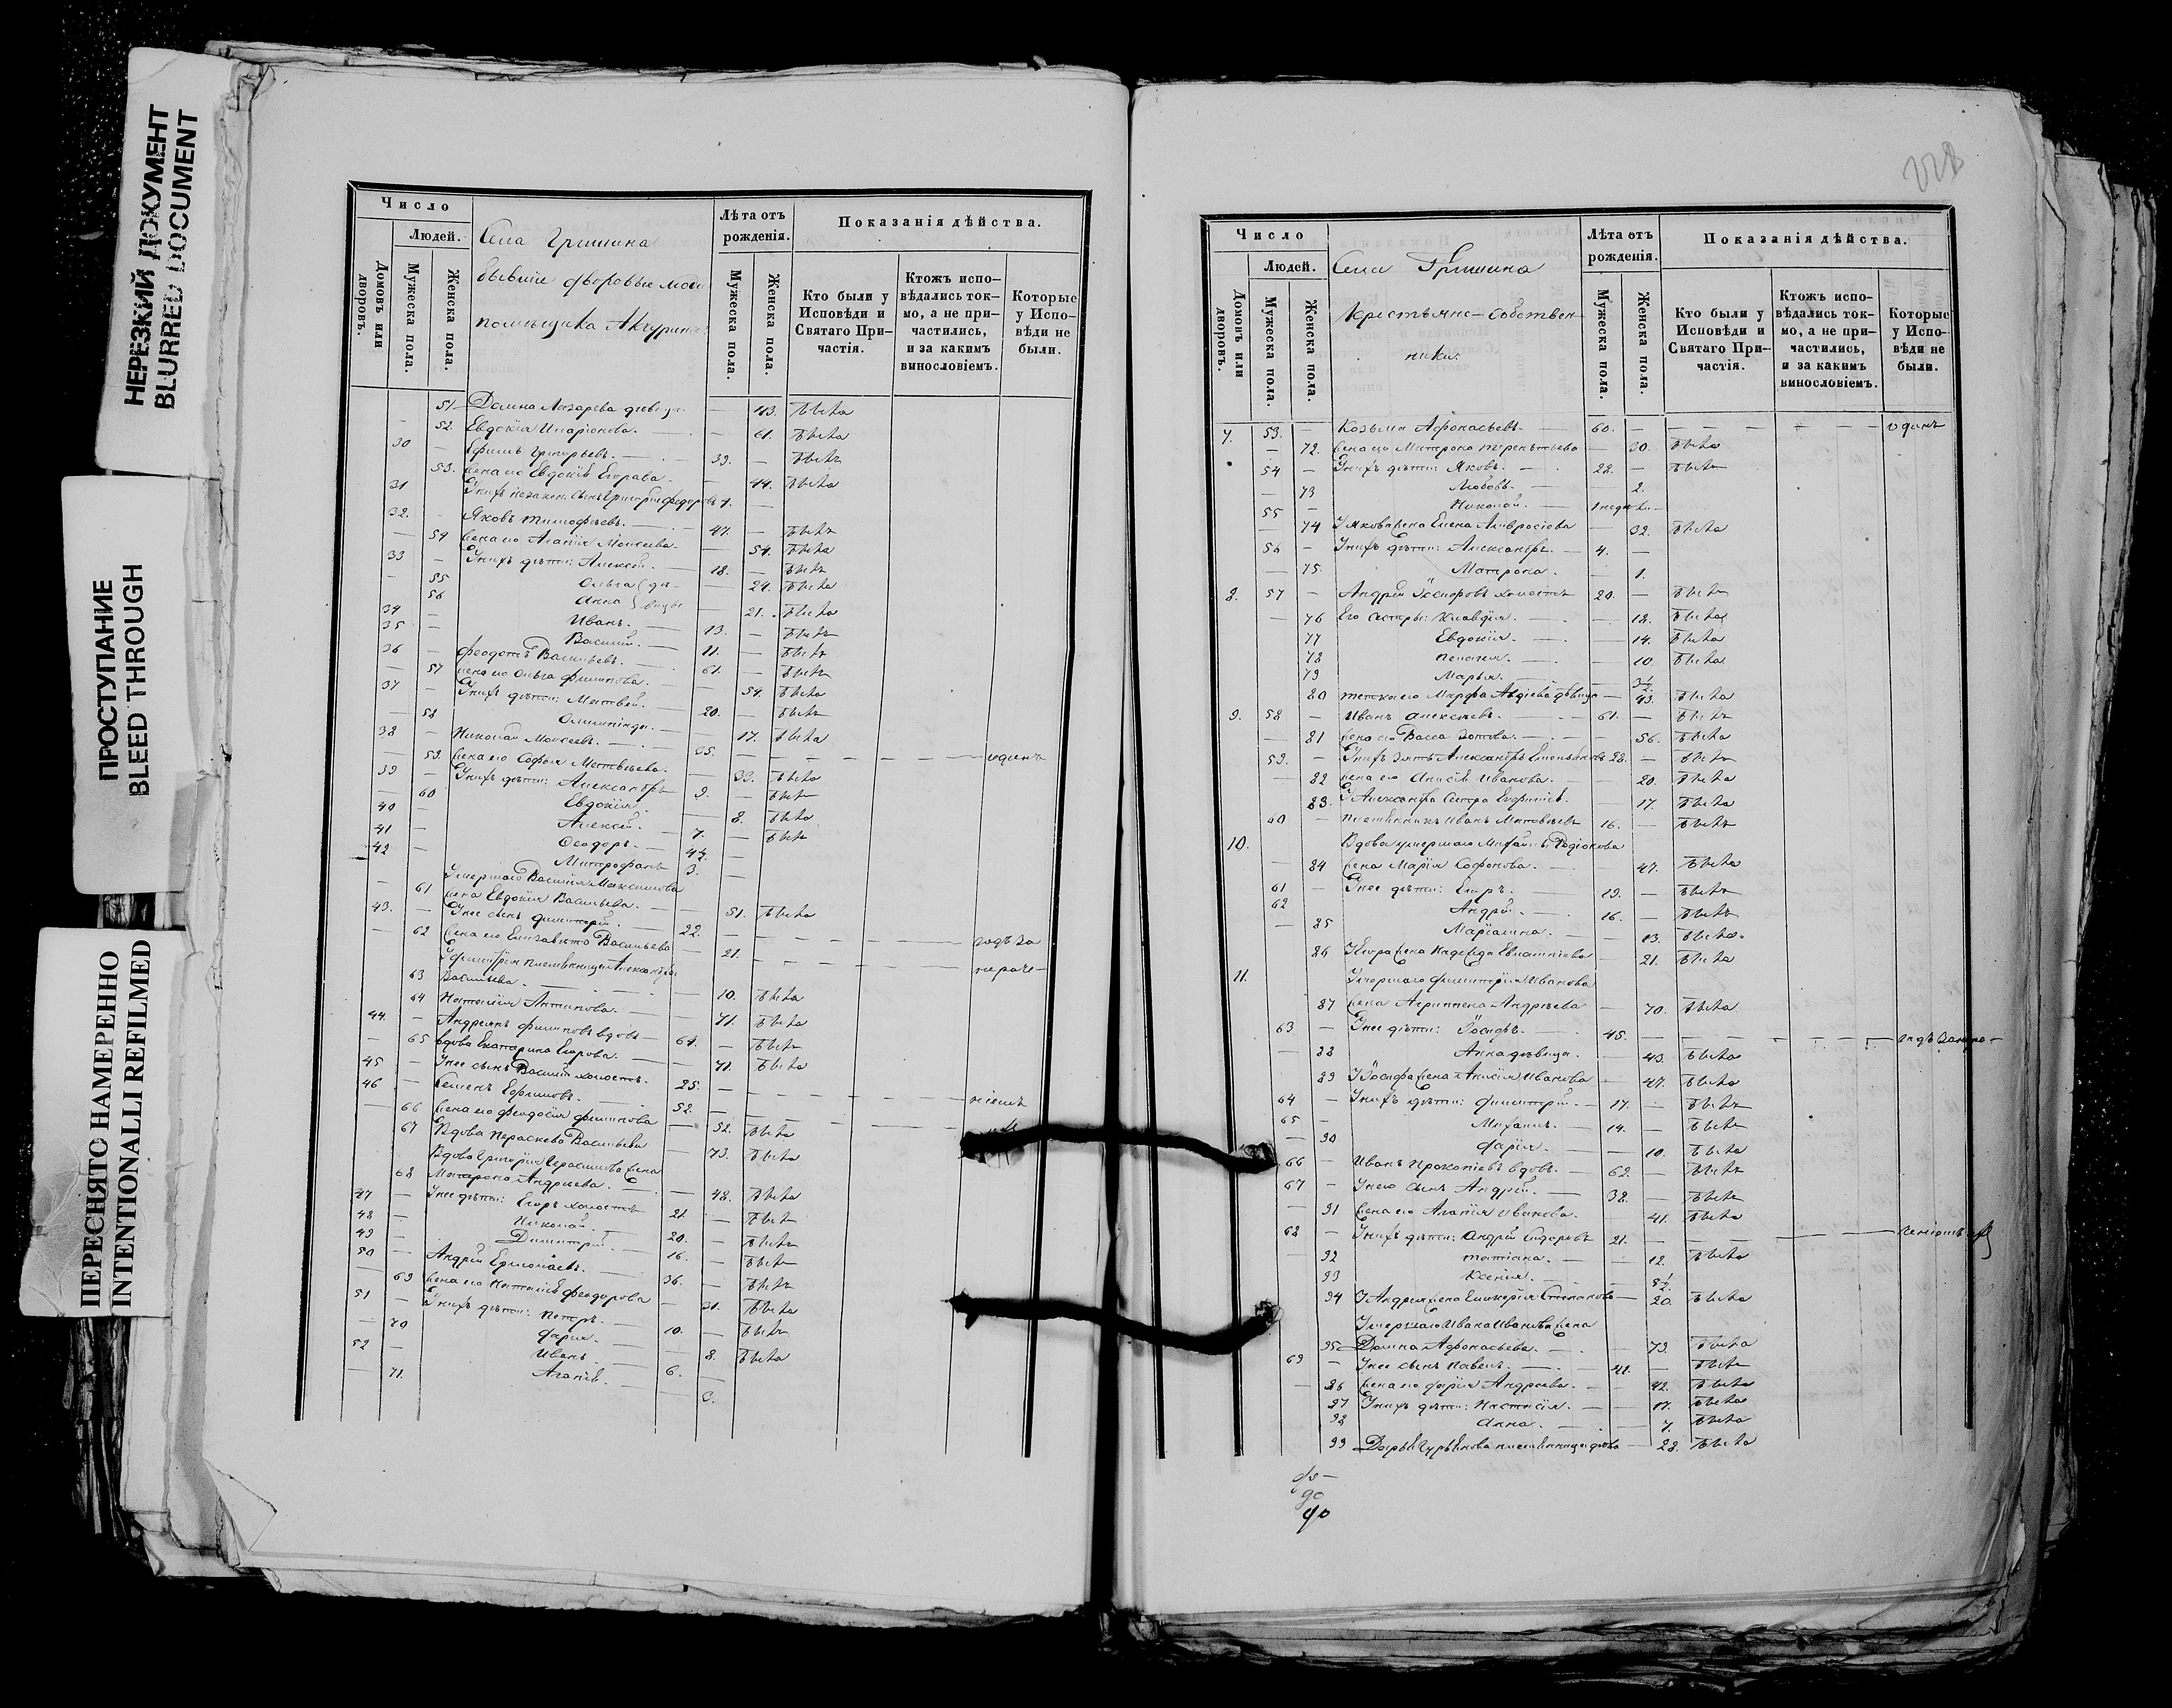 НЕРЕЗКИЙ ДОКУМЕНТ
BLURRED DOCUMENT
ПРОСТУПАНИЕ
BLEED THROUGH
ПЕРЕСНЯТО НАМЕРЕННО
INTENTIONALLI REFILMED
Число
Людей.
Домовъ или дворовъ.
Мужеска пола.
Женска пола.
Села Гришина
бывшіе дворовые люди
помѣщика Акчурина
Лѣта отъ рожденія.
Мужеска пола.
Женска пола.
Показанія дѣйства.
Кто были у Исповѣди и Святаго Причастія.
Ктожъ исповѣдались токмо, а не причастились, и за какимъ винословіемъ.
Которые у Исповѣди не были.
51 Домна Лазарева девица — 43. была
52. Евдокія Иларіонова. — 61. была
30 — Ефимъ Григорьевъ. — 39. — былъ
53. Жена его Евдокія Егорова. — 44. была
31 У нихъ незакон. сынъ Григорій Федоровъ 1. —
32. — Яковъ Тимофѣевъ. — 47. — былъ
— 54 Жена его Агапія Моисеева. — 54. была
33 — У нихъ дѣти: Алексѣй. — 18. — былъ
— 55 Ольга — 24. была
56 Анна — 21. была
34 — Иванъ. — 13. — былъ
35 — Василій. — 11. — былъ
36 — Феодотъ Васильевъ. — 61. — былъ
— 57 Жена его Ольга Филипова. — 54. была
37 — У нихъ дѣти: Матвѣй. — 20. — былъ
— 58 Олимпіада. — 17. была
38 — Николай Моисеевъ. — 35. — одинъ
— 59. Жена его Софья Матвѣева. — 33. была
39 — У нихъ дѣти: Александръ 9. — былъ
— 60 Евдокія. — 8. была
40 — Алексѣй. — 7. — былъ
41 — Ѳеодоръ. —
42 — Митрофанъ 3. —
Умершаго Василія Максимова
— 61 жена Евдокія Васильева. — 51. была
43. — У нее сынъ Димитрій. — 22. —
— 62 Жена его Елизавета Васильева — 21.
У Димитрія племянница Александра
63 Васильева. — 10. была
64 Наталія Антипова. — 71. была
44. — Андреянъ Филиповъ вдовъ — 64. — былъ
— 65 Вдова Екатерина Егорова. — 71. была
45 — У нее сынъ Василій холостъ. 25. —
46 — Семенъ Ефимовъ. — 52. —
— 66 Жена его Феодосія Филипова — 52. была
67 Вдова Параскева Васильева — 73. была
Вдова Григорія Герасимова жена
68 Матрона Андреева. — 48. была
47 — У нее дѣти: Егоръ холостъ 21. — былъ
48 — Николай. — 20. — былъ
49 — Димитрій. — 16. — былъ
50 — Андрей Ермолаевъ. — 36. — былъ
— 69 Жена его Наталія Феодорова — 31. была
51 — У нихъ дѣти: Петръ. — 10. — былъ
— 70 Дарья. — 8. была
52 — Иванъ — 6. —
— 71. Агапія. —
228
Число
Людей.
Домовъ или дворовъ.
Мужеска пола.
Женска пола.
Села Гришина
Крестьяне-Собствен-
ники
Лѣта отъ рожденія.
Мужеска пола.
Женска пола.
Показанія дѣйства.
Кто были у Исповѣди и Святаго Причастія.
Ктожъ исповѣдались токмо, а не причастились, и за какимъ винословіемъ.
Которые у Исповѣди не были.
7. 53. — Козьма Афонасьевъ — 60. — одинъ
— 72. Жена его Матрона Терентьева — 30. была
54 — У нихъ дѣти: Яковъ. — 28. — былъ
— 73 Любовь. — 2.
55 — Николай. — 1 недѣли —
— 74 У Якова жена Елена Амвросіева — 32. была
56 — У нихъ дѣти: Александръ. — 4. —
— 75. Матрона. — 1.
8. 57 — Андрей Іосифовъ холостъ 20. — былъ
— 76 Его сестры: Клавдія. — 18. была
77 Евдокія. — 14. была
78 Пелагія. — 10. была
79 Марья. — 3½
80 Тетка его Марфа Авдіева дѣвица — 43. была
9. 58 — Иванъ Алексѣевъ. — 61. — былъ
— 81 Жена его Васса Зотова. — 56. была
59. — У нихъ зять Александръ Емельяновъ 28. — былъ
— 82 жена его Анисія Иванова. — 20. была
83. У Александра сестра Евфимія. — 17. была
60 — Племянникъ Иванъ Матвѣевъ 16. — былъ
10. Вдова умершаго Михаила Родіонова
— 84 жена Марія Софонова. — 47. была
61 — У нее дѣти: Егоръ. — 19. — былъ
62 Андрей. — 16. — былъ
— 85 Маріамна. — 13. была.
86 У Егора жена Надежда Евлампіева — 21. была
11. Умершаго Димитрія Иванова
87 жена Агрипена Андреева — 70. была
63 — У нее дѣти: Іосифъ. — 45. —
— 88 Анна дѣвица. — 43. была
89 У Іосифа жена Анисія Иванова — 47. была
64 — У нихъ дѣти: Димитрій. — 17. — былъ
65 — Михаилъ. — 14. — былъ
— 90 Дарія. — 10. была
66 — Иванъ Прокопіевъ вдовъ. — 62. — былъ
67 — У него сынъ Андрей. — 38. — былъ
— 91 Жена его Агапія Иванова. — 41. была
68 — У нихъ дѣти: Андрей Сидоровъ 21. —
— 92 Татіана. — 12. была
93 Ксенія. — 8½
94 У Андрея жена Гликерія Степанова — 20. была
Умершаго Ивана Иванова жена
95 Домна Афонасьева. — 73. была
69 — У нее сынъ Павелъ. — 41. — былъ
— 96 Жена его Дарія Андреева. — 42. была
97 У нихъ дѣти: Настасія. — 17. была
98 Анна. — 7. была
99 Дарья Гурьянова племянница — 28. была